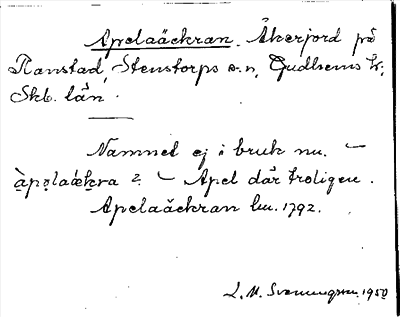 Apelaäckran. Åkerjord på
Ranstad, Stenstorps s:n, Gudhems hd;
Skb. län.
Namnet ej i bruk nu. –
àpəlaák̥ra 2. – Apel där troligen.
Apelaäckran lm. 1792.
L. M. Svenungsson. 1950